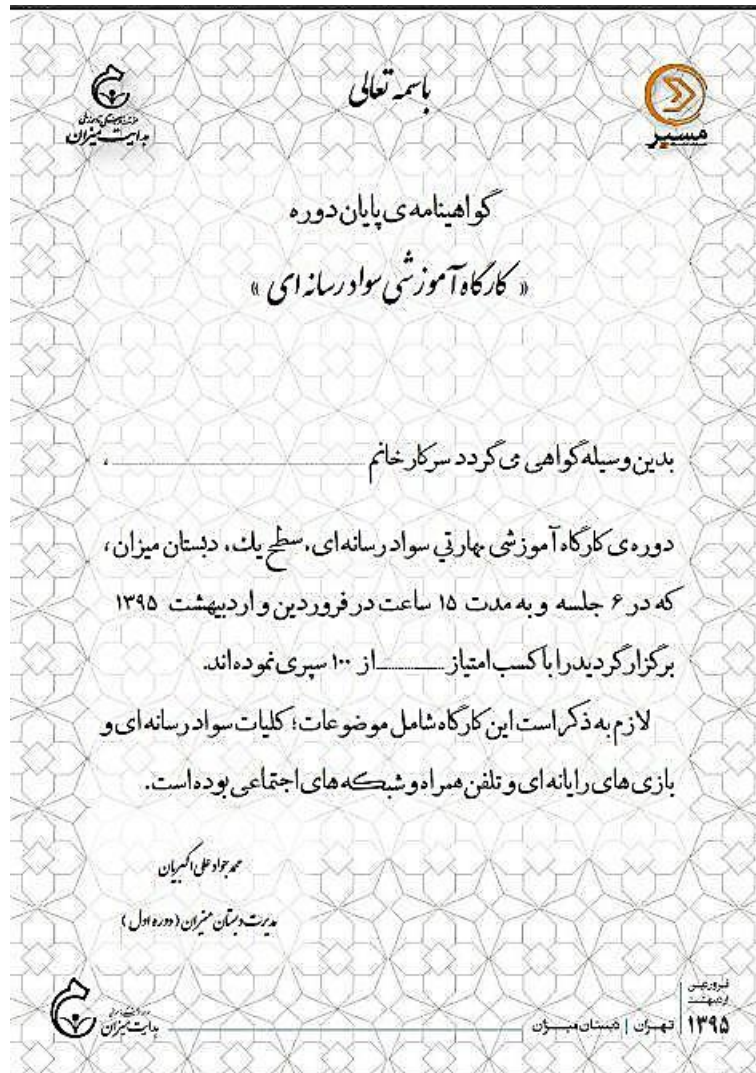 باسمه تعالی
مسیر
هدایت میزان
گواهینامه‌ی پایان دوره
« کارگاه آموزشی سواد رسانه ای »
بدین وسیله گواهی می گردد سرکار خانم ............ ،
دوره‌ی کارگاه آموزشی مهارتی سواد رسانه‌ای، سطح یك، دبستان میزان،
که در ۶ جلسه و به مدت ۱۵ ساعت در فروردین و اردیبهشت ۱۳۹۵
برگزار گردید را با کسب امتیاز ............ از ۱۰۰ سپری نموده‌اند.
لازم به ذکر است این کارگاه شامل موضوعات؛ کلیات سواد رسانه ای و
بازی های رایانه ای و تلفن همراه و شبکه های اجتماعی بوده است.
محمد جواد علی اکبریان
مدیریت دبستان میزان (دوره اول)
هدایت میزان
تهران | دبستان میزان
فروردین
اردیبهشت
۱۳۹۵